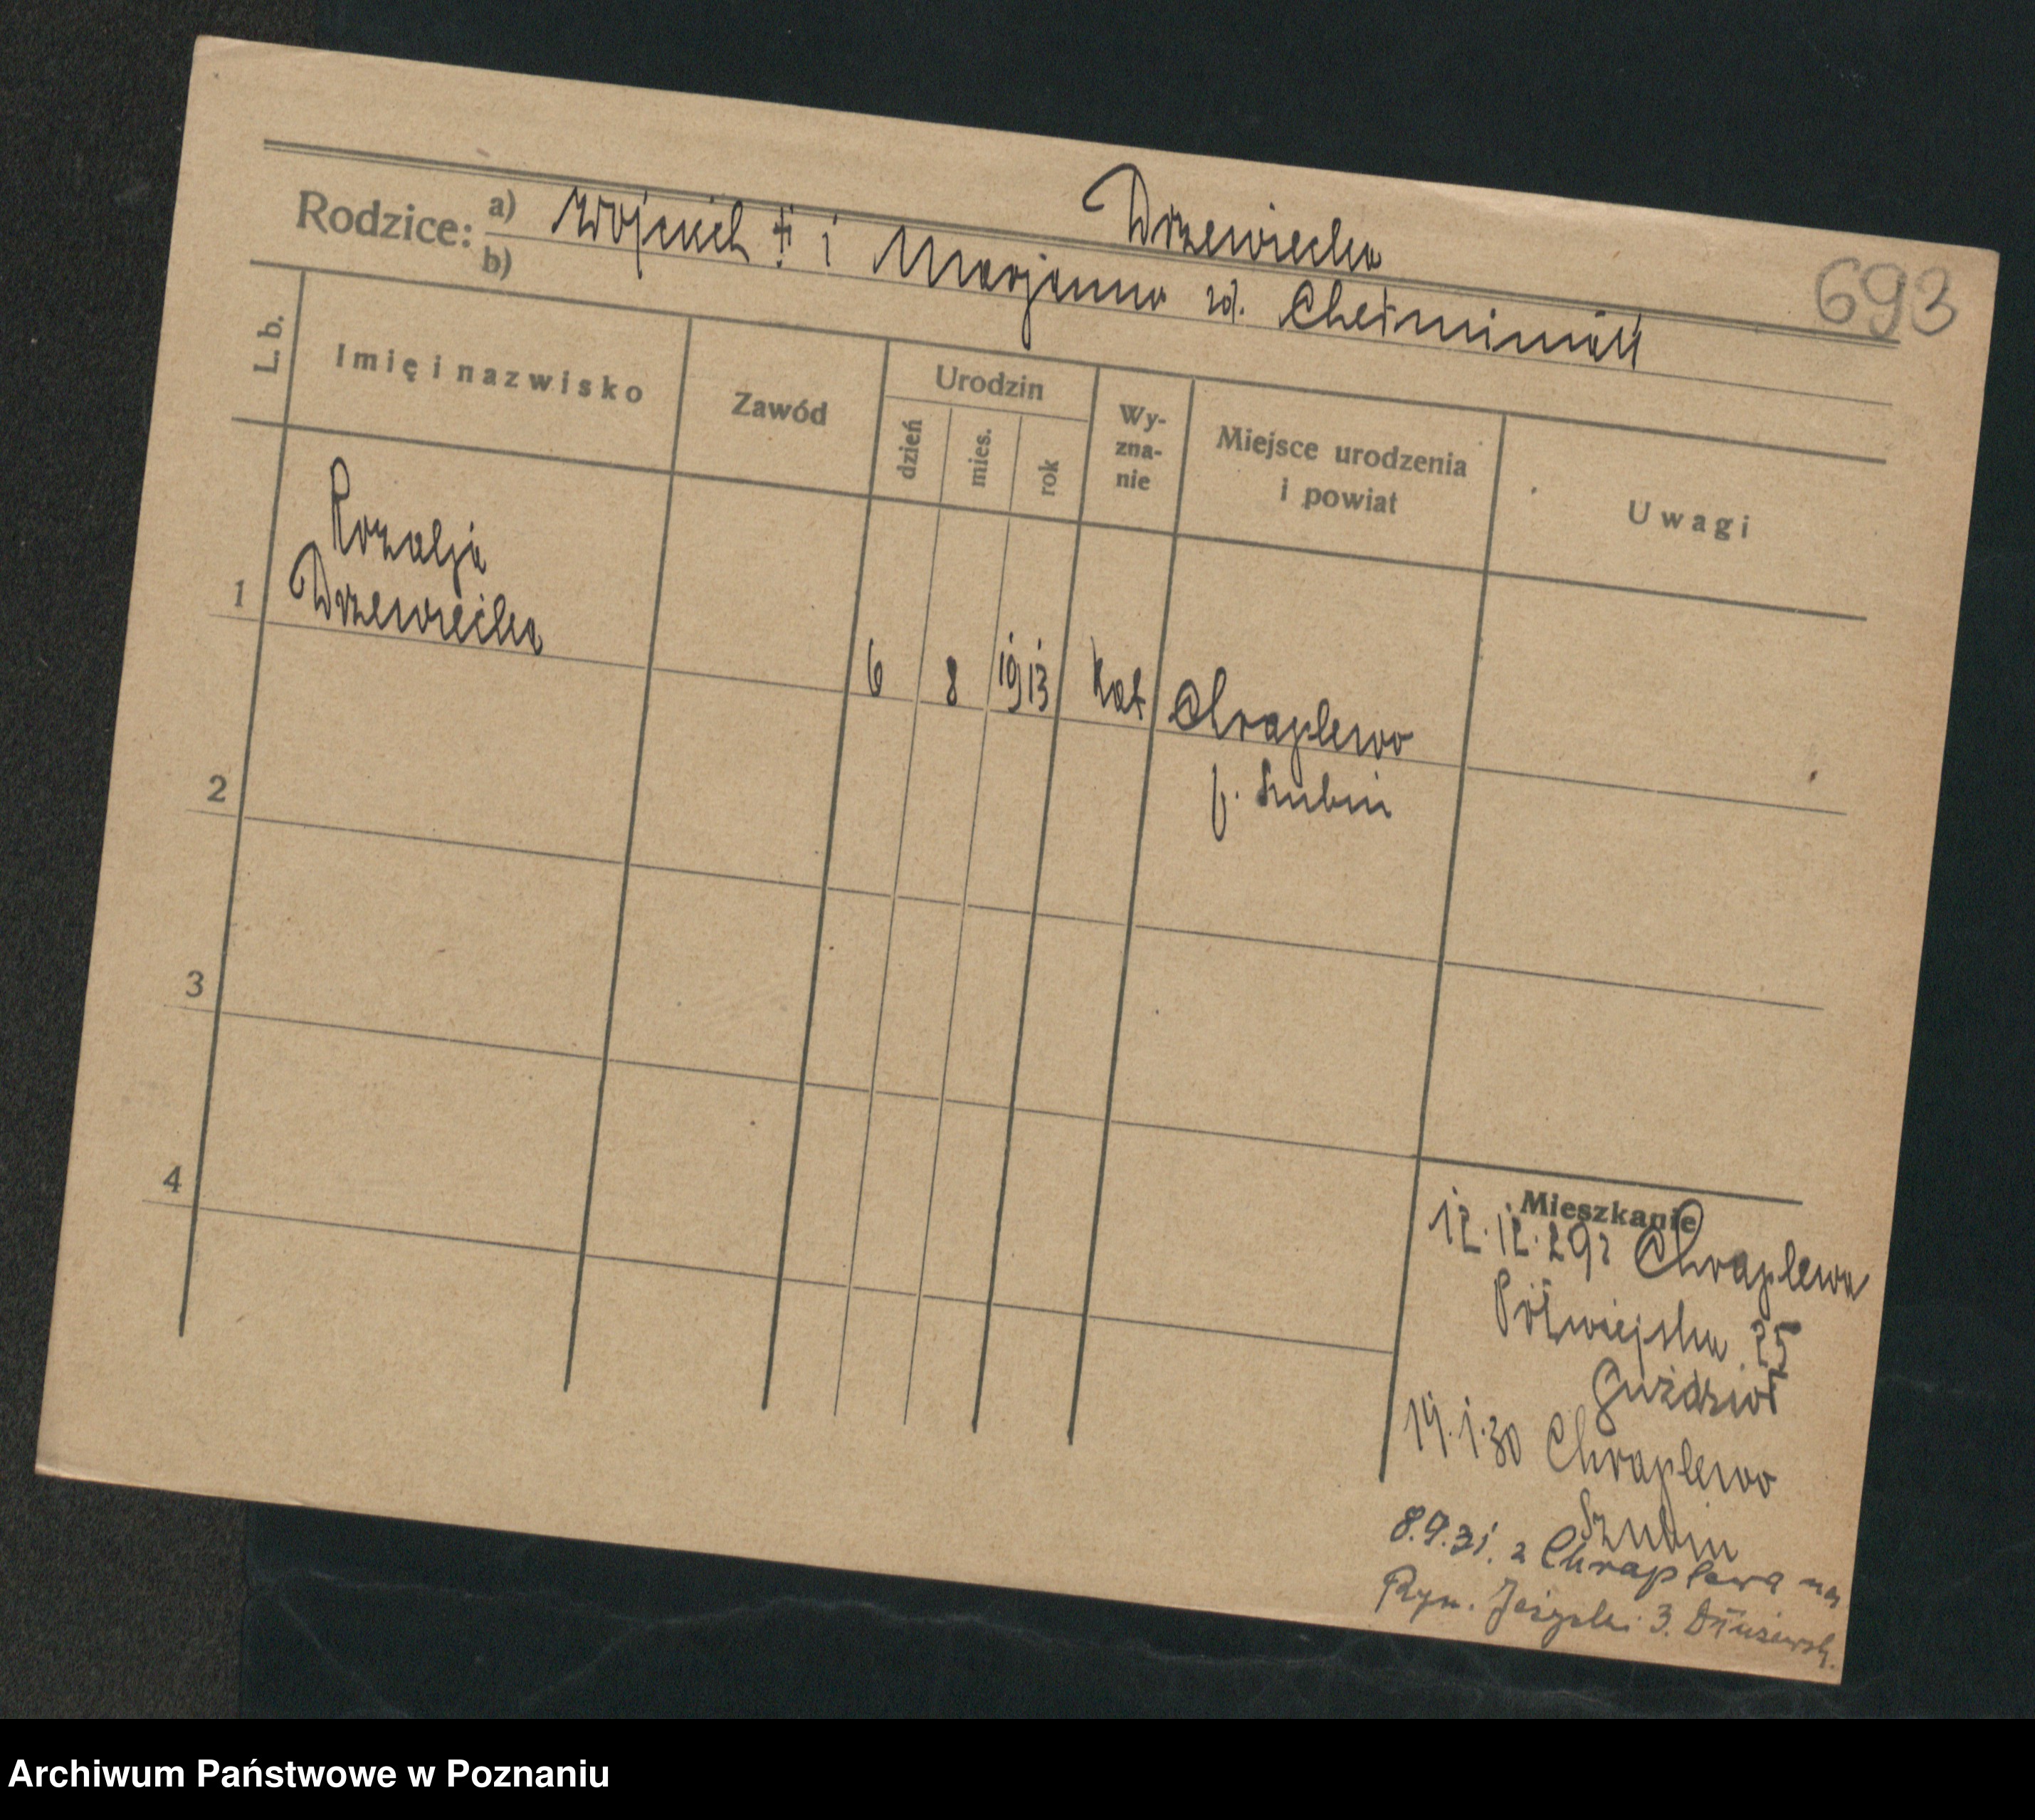 Drzewiecka
693
Rodzice: a) Wojciech † i Marjanna zd.
b)
L. b.
Imię i nazwisko
Zawód
Urodzin
dzień
mies.
rok
Wy-
zna-
nie
Miejsce urodzenia
i powiat
Uwagi
Rozalja
1 Drzewiecka 6 8 1913 Kat Chraplewo
p. Szubin
2
3
4
Mieszkanie
12.12.29 z Chraplewa
Półwiejska 25
14.1.30 Chraplewo
Szubin
8.9.31. z Chraplewa na
Ryn. Jeżycki 3.
Archiwum Państwowe w Poznaniu